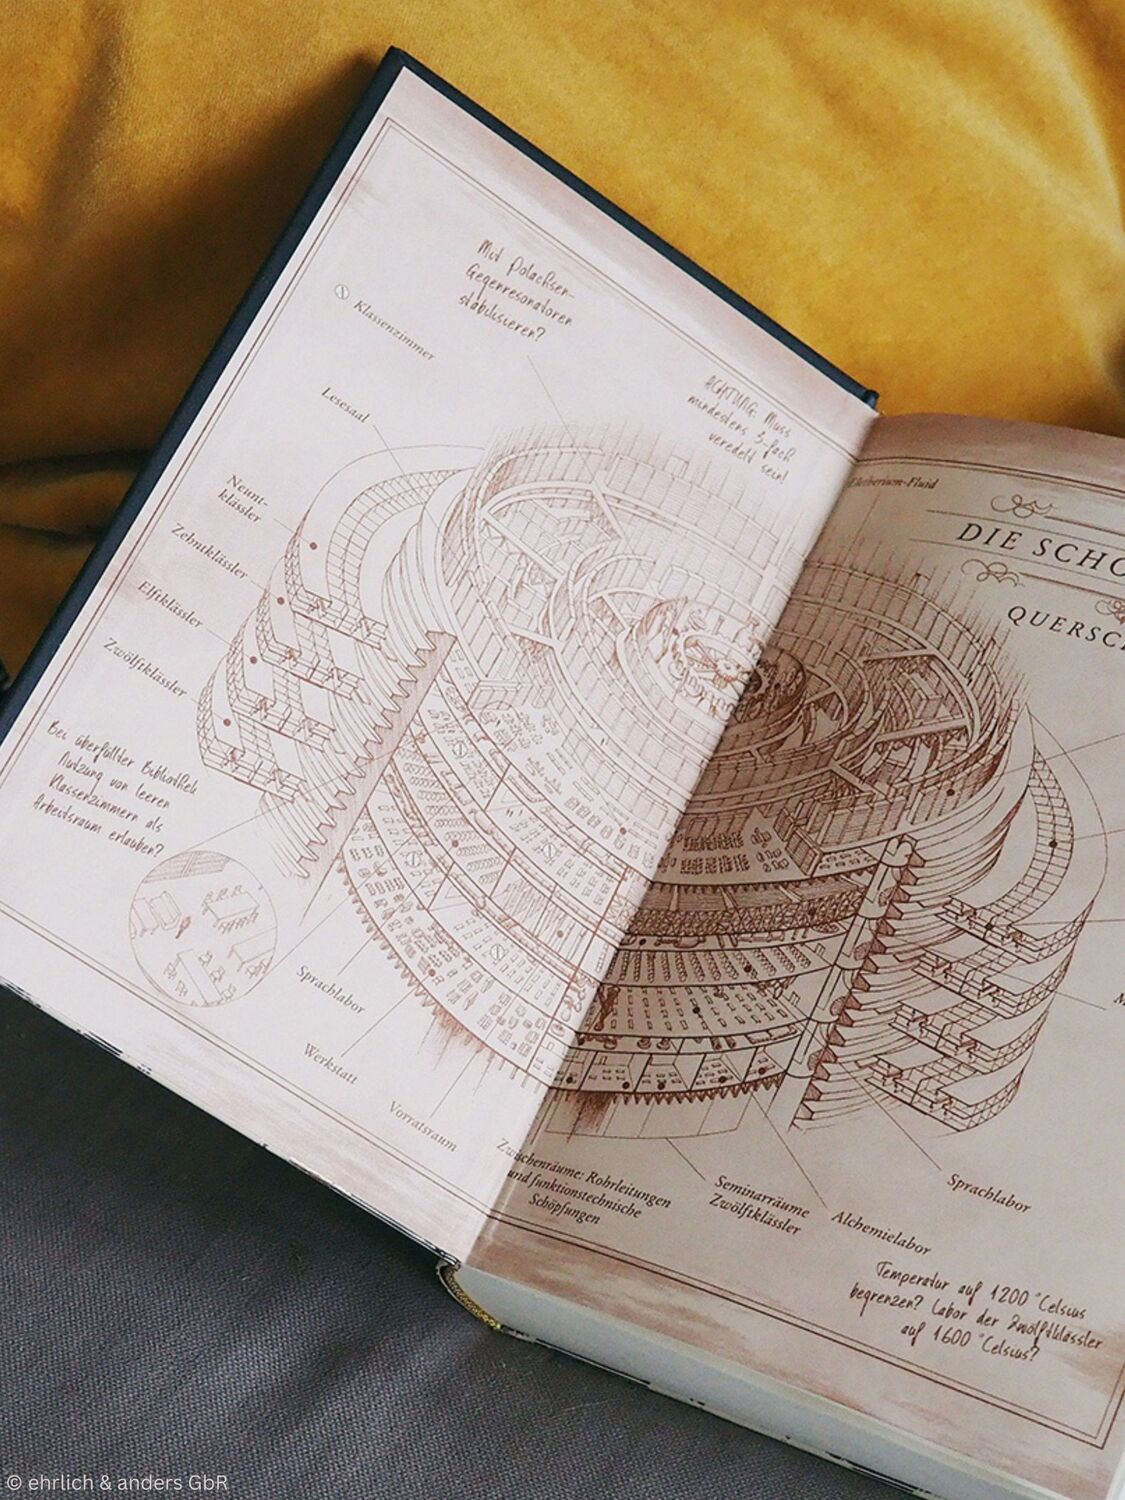 Mit Polachsen-
Gegenresonatoren
stabilisieren?
Klassenzimmer
ACHTUNG: Muss
mindestens 3-fach
veredelt sein!
Lesesaal
Neunt-
klässler
Zehntklässler
Elftklässler
Zwölftklässler
Bei überfüllter Bibliothek
Nutzung von leeren
Klassenzimmern als
Arbeitsraum erlauben?
Sprachlabor
Werkstatt
Vorratsraum
-Fluid
DIE SCHO
QUERSC
Zwischenräume: Rohrleitungen
und funktionstechnische
Schöpfungen
Seminarräume
Zwölftklässler
Alchemielabor
Sprachlabor
Temperatur auf 1200 °Celsius
begrenzen? Labor der Zwölftklässler
auf 1600 °Celsius?
© ehrlich & anders GbR